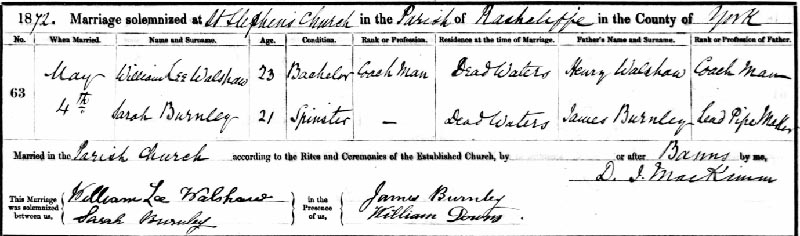 1872. Marriage solemnized at St Stephens Church in the Parish of Rashcliffe in the County of York
No. When Married. Name and Surname. Age. Condition. Rank or Profession. Residence at the time of Marriage. Father's Name and Surname. Rank or Profession of Father.
63 May 4th William Lee Walshaw 23 Bachelor Coach Man Dead Waters Henry Walshaw Coach Man
Sarah Burnley 21 Spinster — Dead Waters James Burnley Lead Pipe Maker
Married in the Parish Church according to the Rites and Ceremonies of the Established Church, by or after Banns by me,
D. J. MacKinnon
This Marriage was solemnized between us, William Lee Walshaw in the Presence of us, James Burnley
Sarah Burnley William Downs.